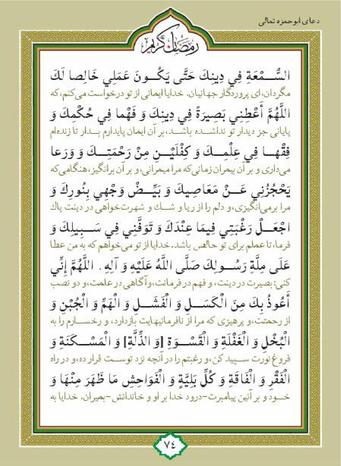 دعای ابوحمزه ثمالی
رمضان کریم
السُّمْعَةِ فِي دِينِكَ حَتَّى يَكُونَ عَمَلِي خَالِصا لَكَ
مگردان، ای پروردگار جهانیان. خدایا ایمانی از تو درخواست می‌کنم، که
اللَّهُمَّ أَعْطِنِي بَصِيرَةً فِي دِينِكَ وَ فَهْما فِي حُكْمِكَ وَ
پایانی جز دیدار تو نداشته باشد، بر آن ایمان پایدارم بدار تا زنده‌ام
فِقْها فِي عِلْمِكَ وَ كِفْلَيْنِ مِنْ رَحْمَتِكَ وَ وَرَعا
می‌داری و بر آن بمیران زمانی که مرا میمیرانی، و بر آن برانگیز، هنگامی‌که
يَحْجُزُنِي عَنْ مَعَاصِيكَ وَ بَيِّضْ وَجْهِي بِنُورِكَ وَ
مرا برمی‌انگیزی، و دلم را از ریا و شک و شهرت‌خواهی در دینت پاک
اجْعَلْ رَغْبَتِي فِيمَا عِنْدَكَ وَ تَوَفَّنِي فِي سَبِيلِكَ وَ
فرما، تا عملم برای تو خالص باشد. خدایا از تو می‌خواهم که به من عطا
عَلَى مِلَّةِ رَسُولِكَ صَلَّى اللَّهُ عَلَيْهِ وَ آلِهِ . اللَّهُمَّ إِنِّي
کنی: بصیرت در دینت، و فهم در فرمانت، و آگاهی در علمت، و دو نصب
أَعُوذُ بِكَ مِنَ الْكَسَلِ وَ الْفَشَلِ وَ الْهَمِّ وَ الْجُبْنِ وَ
از رحمتت، و پرهیزی که مرا از نافرمانیهایت بازدارد، و رخسارم را به
الْبُخْلِ وَ الْغَفْلَةِ وَ الْقَسْوَةِ [وَ الذِّلَّةِ] وَ الْمَسْكَنَةِ وَ
فروغ نورت سپید کن، و رغبتم را در آنچه نزد توست قرار ده، و در راه
الْفَقْرِ وَ الْفَاقَةِ وَ كُلِّ بَلِيَّةٍ وَ الْفَوَاحِشِ مَا ظَهَرَ مِنْهَا وَ
خود و بر آئین پیامبرت-درود خدا بر او و خاندانش-بمیران. خدایا به
٧٤